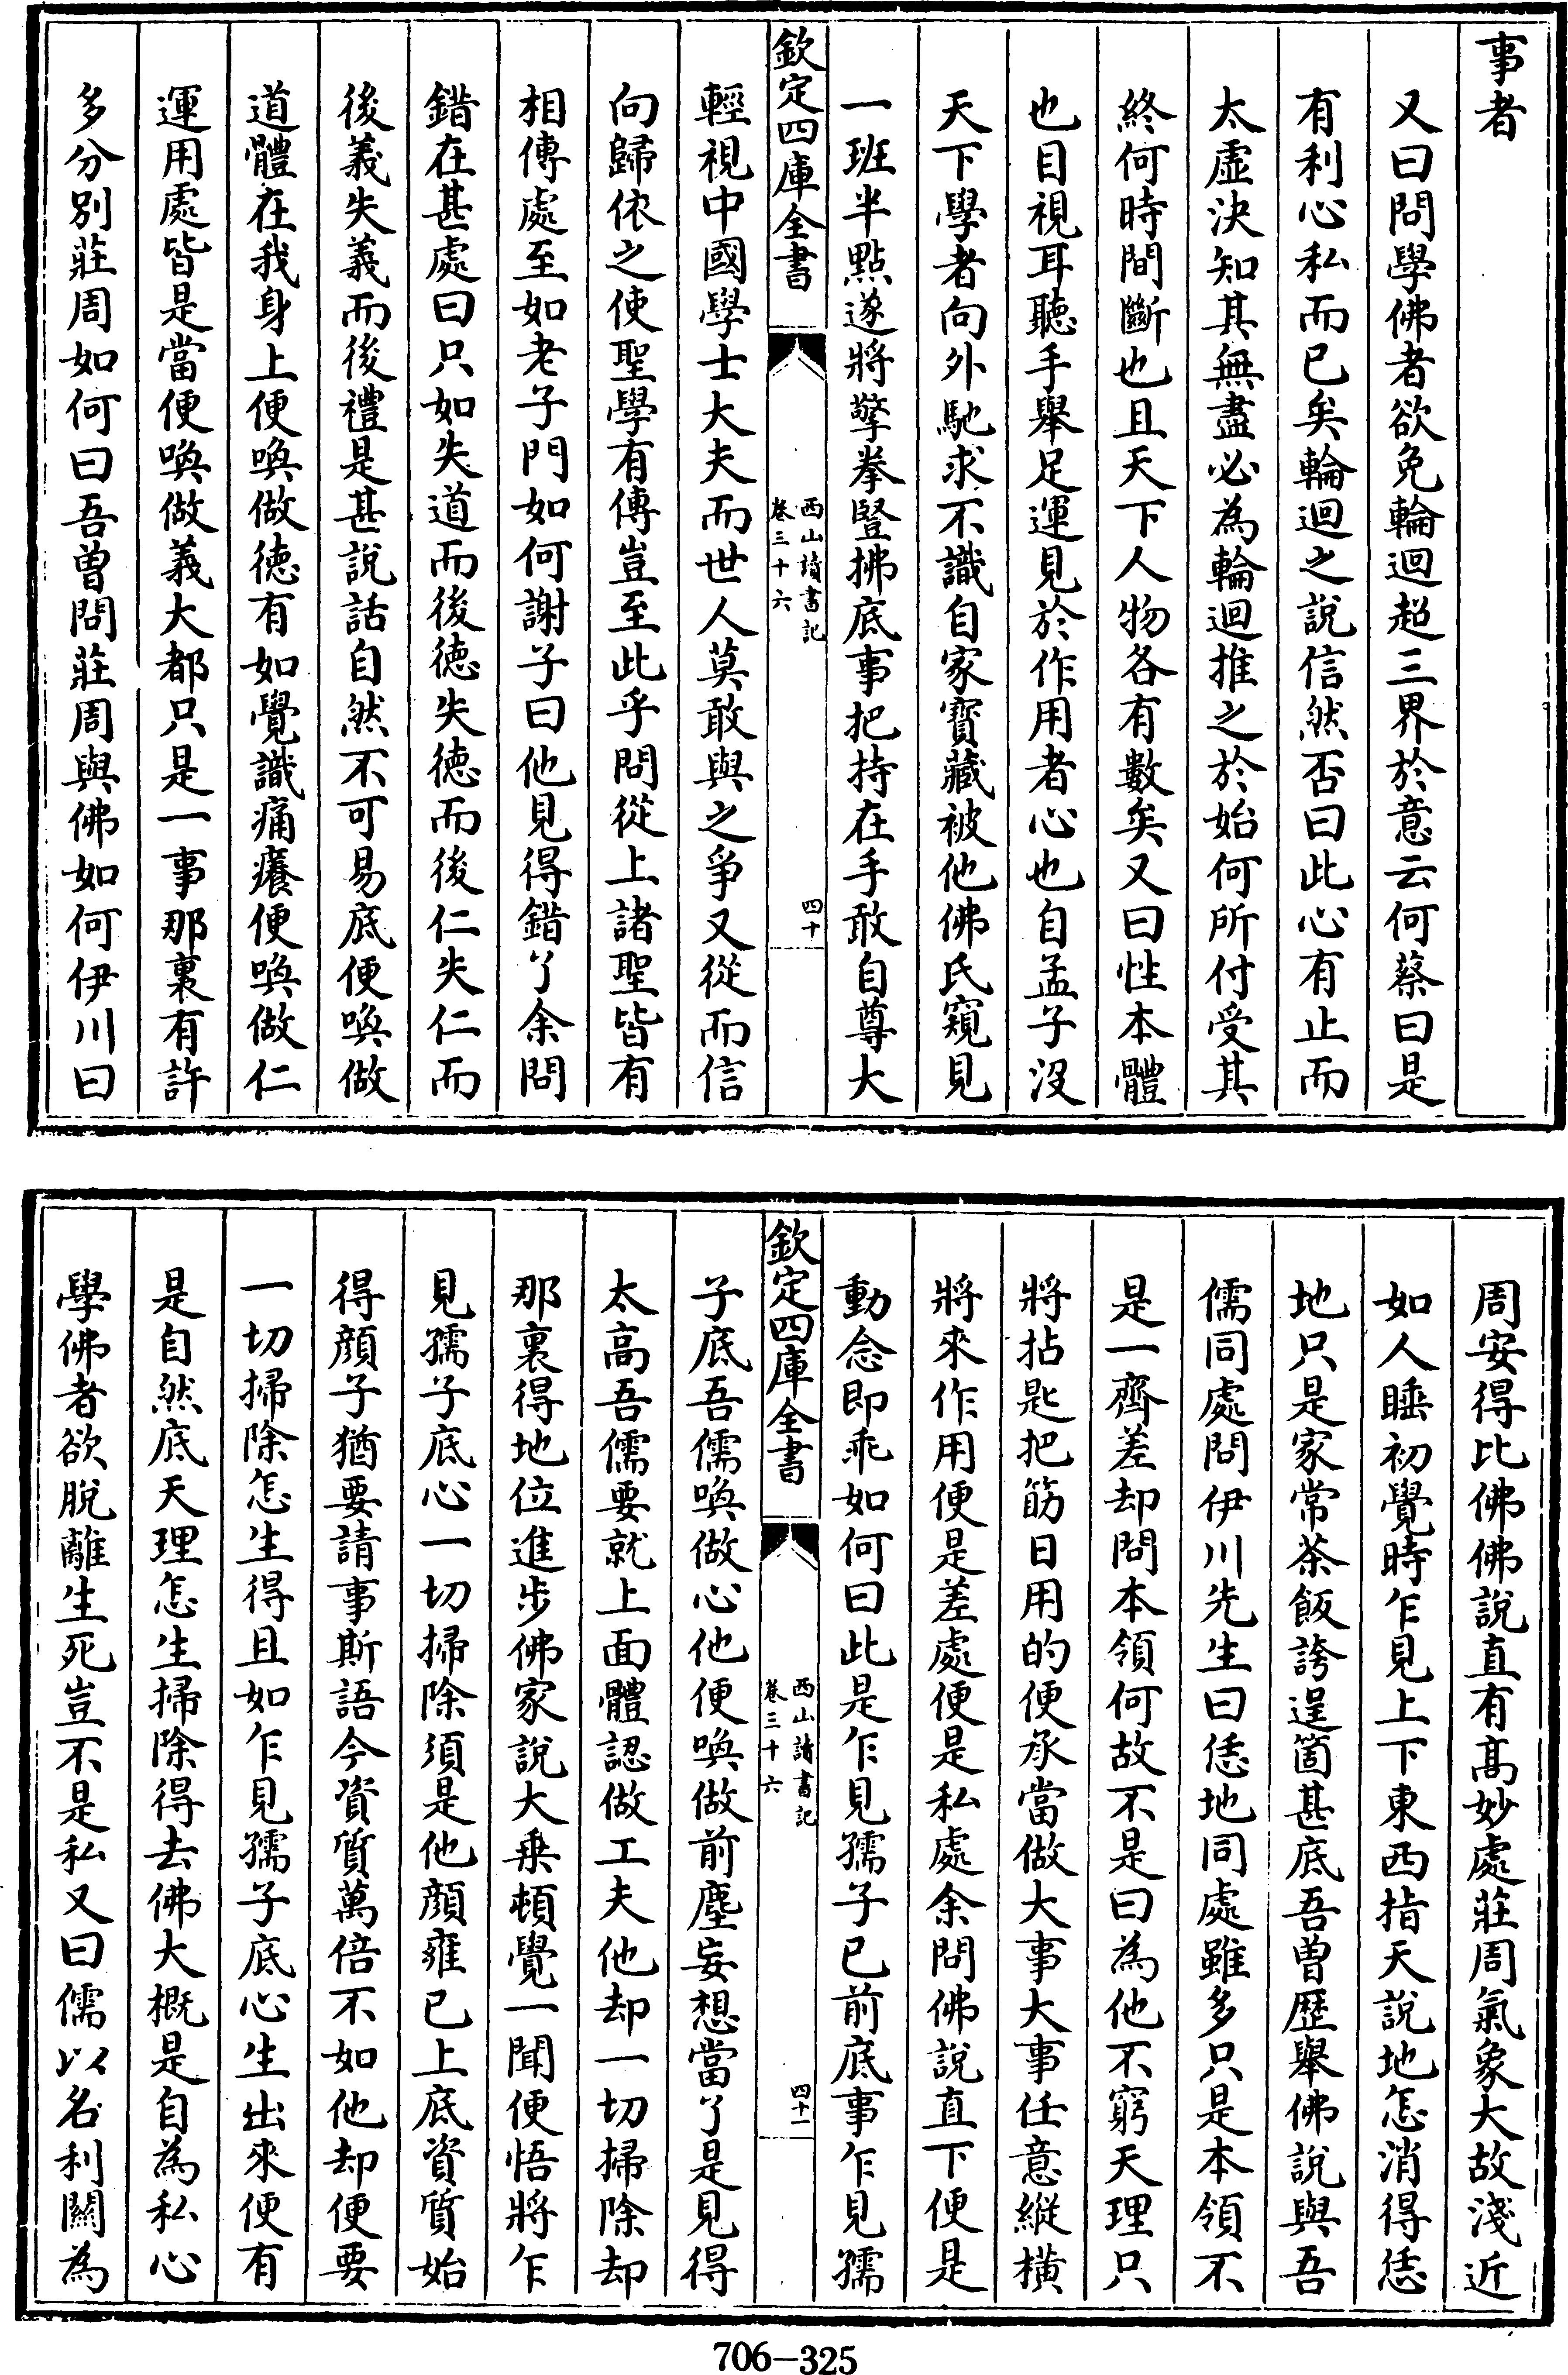 事者
又曰問學佛者欲免輪迴超三界於意云何蔡曰是
有利心私而已矣輪迴之說信然否曰此心有止而
太虛決知其無盡必為輪迴推之於始何所付受其
終何時間斷也且天下人物各有數矣又曰性本體
也目視耳聽手舉足運見於作用者心也自孟子沒
天下學者向外馳求不識自家寳藏被他佛氏窺見
一班半點遂將擎拳豎拂底事把持在手敢自尊大
欽定四庫全書
西山讀書記
卷三十六
四十
輕視中國學士大夫而世人莫敢與之爭又從而信
向歸依之使聖學有傳豈至此乎問從上諸聖皆有
相傳處至如老子門如何謝子曰他見得錯了余問
錯在甚處曰只如失道而後徳失徳而後仁失仁而
後義失義而後禮是甚說話自然不可易底便喚做
道體在我身上便喚做徳有如覺識痛癢便喚做仁
運用處皆是當便喚做義大都只是一事那裏有許
多分別莊周如何曰吾曾問莊周與佛如何伊川曰
周安得比佛佛說直有髙妙處莊周氣象大故淺近
如人睡初覺時乍見上下東西指天說地怎消得恁
地只是家常茶飯誇逞箇甚底吾曽歴舉佛說與吾
儒同處問伊川先生曰恁地同處雖多只是本領不
是一齊差却問本領何故不是曰為他不窮天理只
將拈匙把筯日用的便承當做大事大事任意縱橫
將來作用便是差處便是私處余問佛說直下便是
動念即乖如何曰此是乍見孺子已前底事乍見孺
欽定四庫全書
西山讀書記
卷三十六
四十一
子底吾儒喚做心他便喚做前塵妄想當了是見得
太高吾儒要就上面體認做工夫他却一切掃除却
那裏得地位進步佛家說大乗頓覺一聞便悟將乍
見孺子底心一切掃除須是他顔雍已上底資質始
得顔子猶要請事斯語今資質萬倍不如他却便要
一切掃除怎生得且如乍見孺子底心生出來便有
是自然底天理怎生掃除得去佛大概是自為私心
學佛者欲脫離生死豈不是私又曰儒以名利關為
706-325